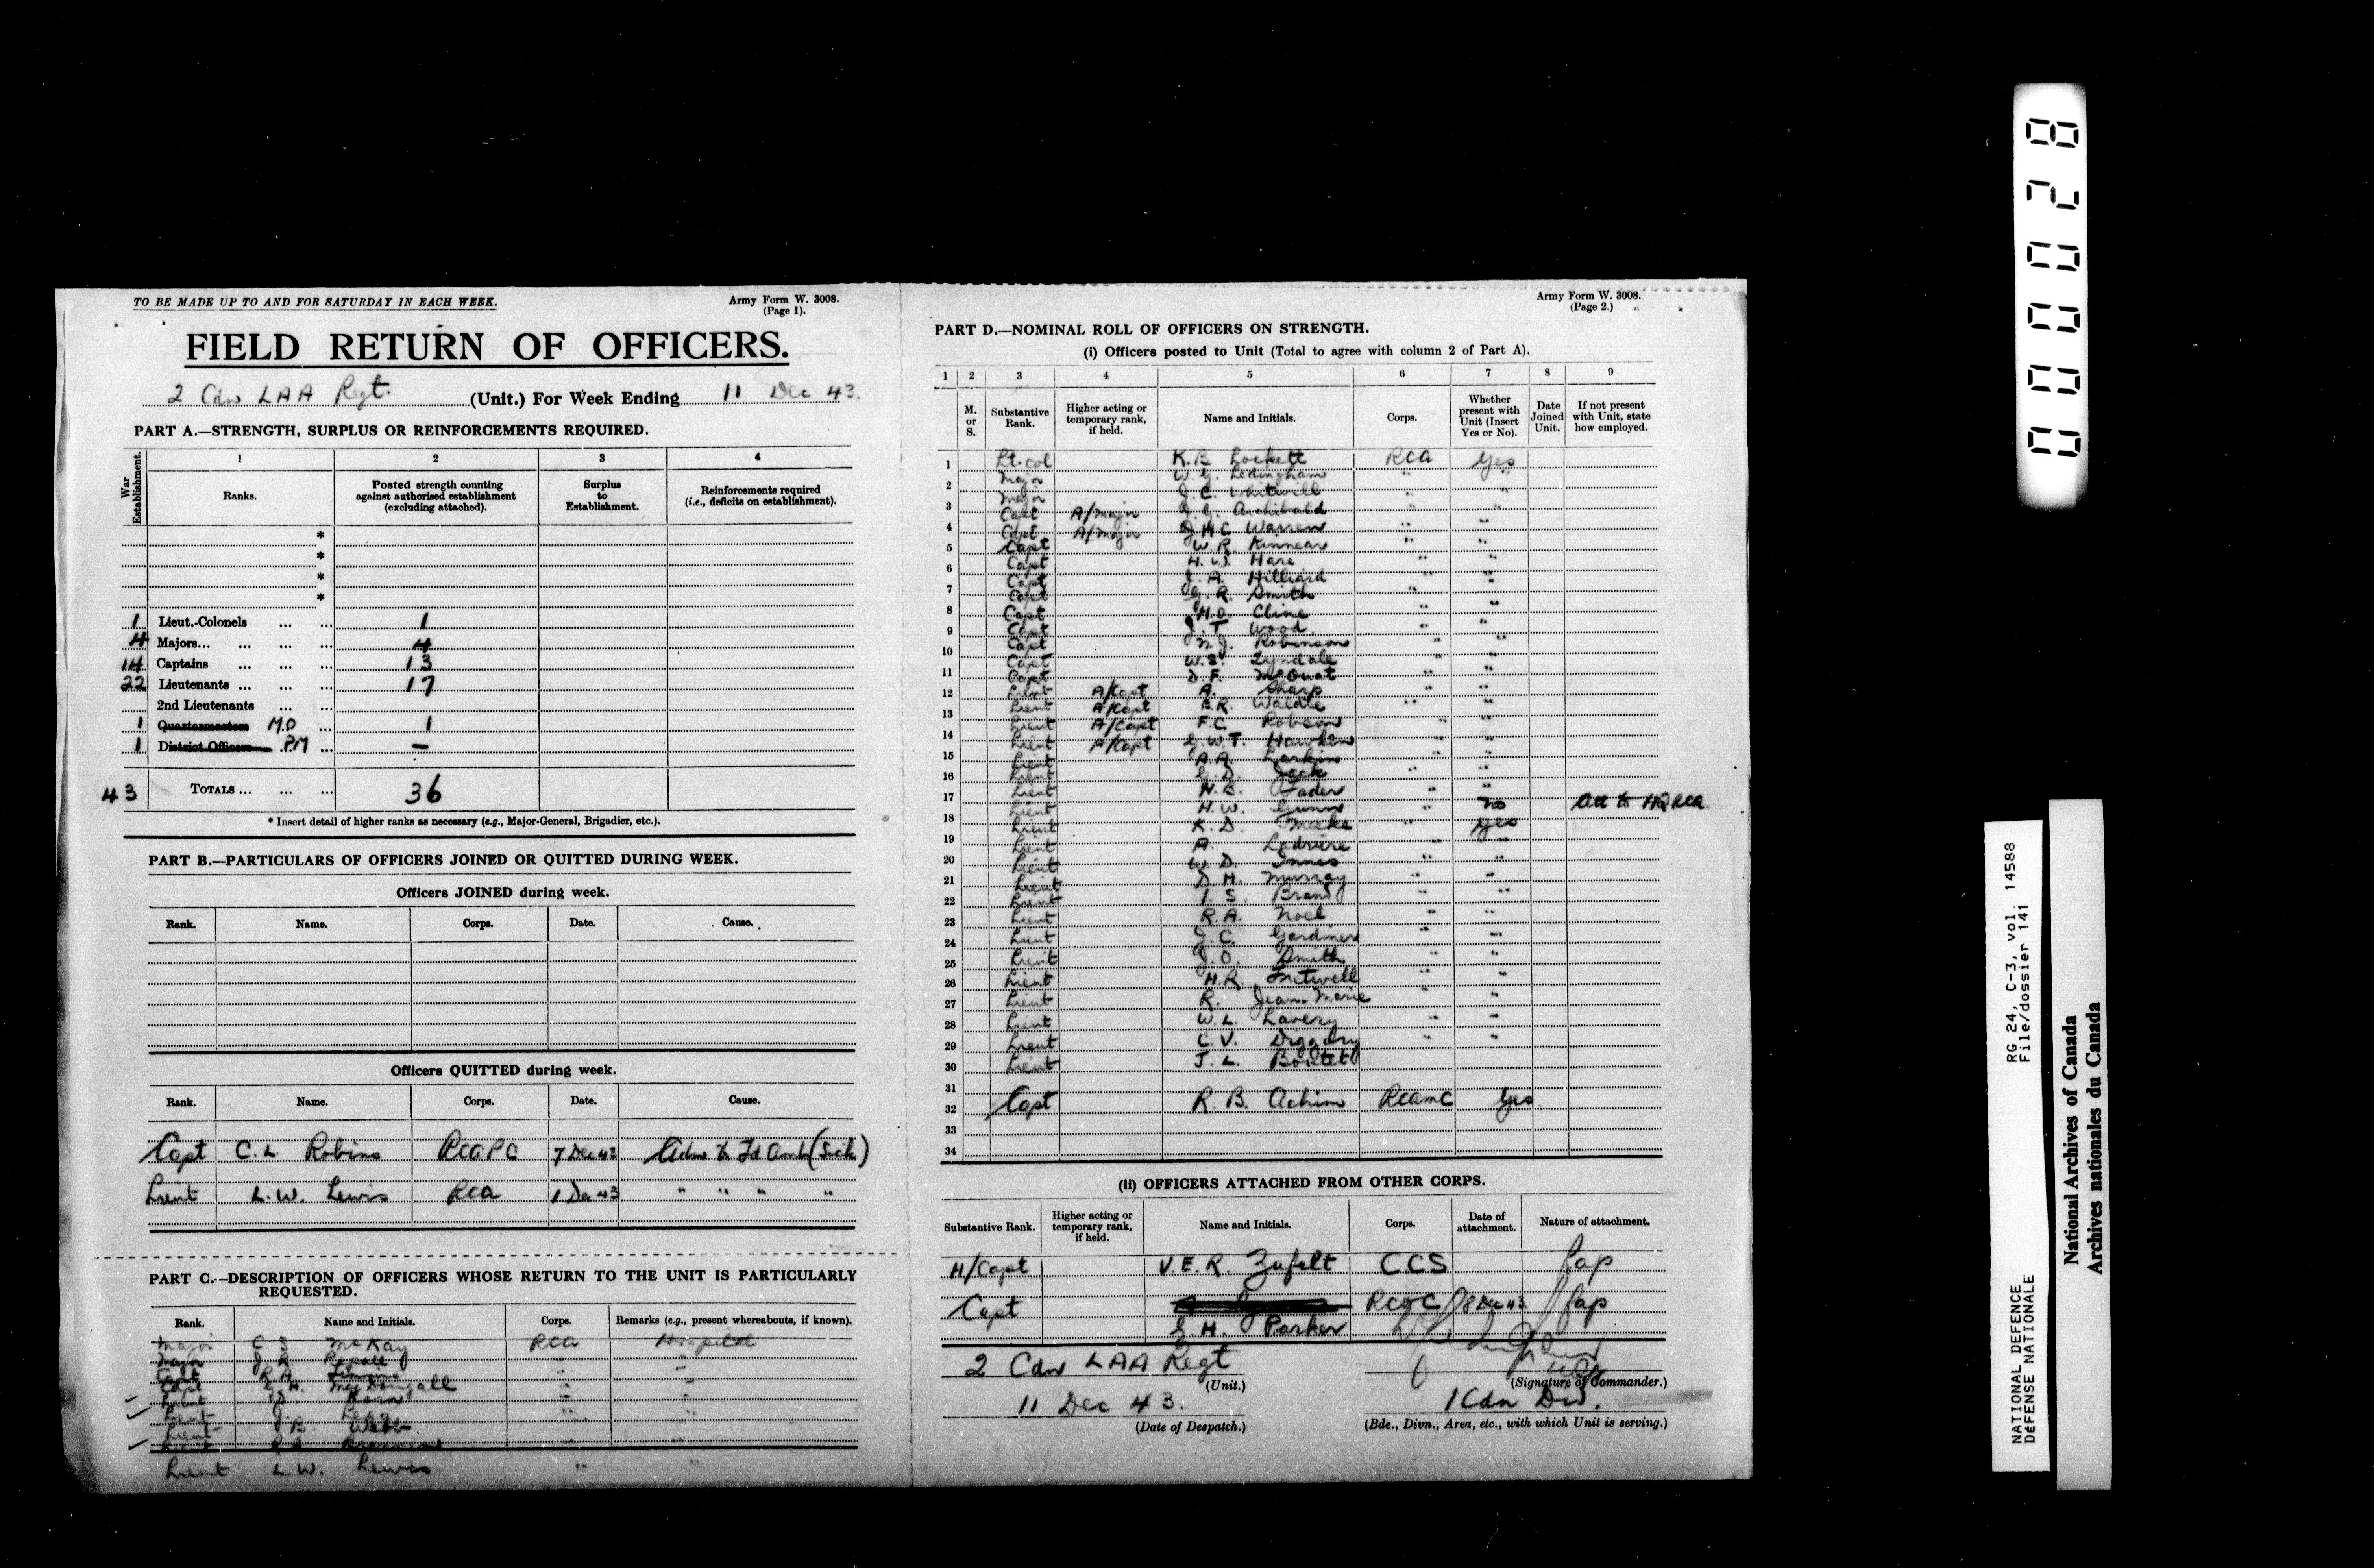 TO BE MADE UP TO AND FOR SATURDAY IN EACH WEEK.
Army Form W. 3008.
(Page 1).
FIELD RETURN OF OFFICERS.
2 Cdn LAA Regt. (Unit.) For Week Ending 11 Dec 43.
PART A.—STRENGTH, SURPLUS OR REINFORCEMENTS REQUIRED.
War Establishment.
1 2 3 4
Ranks. Posted strength counting against authorised establishment (excluding attached). Surplus to Establishment. Reinforcements required (i.e., deficits on establishment).
*
*
*
*
1 Lieut.-Colonels ... ... 1
4 Majors... ... ... ... 4
14 Captains ... ... ... 13
22 Lieutenants ... ... ... 17
2nd Lieutenants ... ...
1 Quartermasters M.O ... 1
1 District Officers PM ... —
43 TOTALS ... ... ... 36
* Insert detail of higher ranks as necessary (e.g., Major-General, Brigadier, etc.).
PART B.—PARTICULARS OF OFFICERS JOINED OR QUITTED DURING WEEK.
Officers JOINED during week.
Rank. Name. Corps. Date. Cause.
Officers QUITTED during week.
Rank. Name. Corps. Date. Cause.
Capt C. L. Robins RCAPC 7 Dec 43 Adm to Fd Amb (Sick)
Lieut L. W. Lewis RCA 1 Dec 43 " " " "
PART C.—DESCRIPTION OF OFFICERS WHOSE RETURN TO THE UNIT IS PARTICULARLY REQUESTED.
Rank. Name and Initials. Corps. Remarks (e.g., present whereabouts, if known).
Major C S McKay RCA Hospital
Major J. R.
Capt R A
Capt G. H. MacDougall
Lieut
Lieut J.
Lieut J B Webb
Lieut L.W. Lewis " "
Army Form W. 3008.
(Page 2.)
PART D.—NOMINAL ROLL OF OFFICERS ON STRENGTH.
(i) Officers posted to Unit (Total to agree with column 2 of Part A).
1 2 3 4 5 6 7 8 9
M. or S. Substantive Rank. Higher acting or temporary rank, if held. Name and Initials. Corps. Whether present with Unit (Insert Yes or No). Date Joined Unit. If not present with Unit, state how employed.
1 Lt. col K. B. Lockett RCA Yes
2 Major W. G. Ledingham " "
Major J. C. Whitwill " "
3 Capt A/Major J. G. Archibald " "
4 Capt A/Major J. H. C. Warren " "
5 Capt W R. Kinnear " "
6 Capt H. W. Hare " "
Capt A. Hilliard "
7 Capt G. R. Smith " "
8 Capt H.O. Cline " "
9 Capt J. T Wood " "
10 Capt N. J. Robinson " "
Capt W. S. Tyndale " "
11 Capt D. F. McOuat " "
12 Lieut A/Capt A. Sharp " "
13 Lieut A/Capt E.R. Waddle " "
14 Lieut A/Capt F.C. Robson " "
Lieut A/Capt G. W. T. Hawkins " "
15 Lieut A.A. Larkin " "
16 Lieut G. D. Jack " "
Lieut H. B. Fader " "
17 Lieut H. W. Gunn " No Att to HQ RCA
18 Lieut K. D. Meeke " Yes
19 Lieut A. "
20 Lieut W. D. Innes " "
21 Lieut D H. Murray " "
22 Lieut I. S. Brand " "
23 Lieut R. A. Noel " "
24 Lieut J. C. Gardiner " "
25 Lieut J. O. Smith " "
26 Lieut H.R. Fretwell " "
27 Lieut R. Jean-Marie " "
28 Lieut W. L. Lavery " "
29 Lieut C. V. " "
30 Lieut J. L. Boutet
31
32 Capt R. B. Achim RCAMC Yes
33
34
(ii) OFFICERS ATTACHED FROM OTHER CORPS.
Substantive Rank. Higher acting or temporary rank, if held. Name and Initials. Corps. Date of attachment. Nature of attachment.
H/Capt V. E. R. Zufelt CCS fap
Capt RCOC 8 Dec 43 fap
G H. Parker
2 Cdn LAA Regt
(Unit.)
(Signature of Commander.)
11 Dec 43.
(Date of Despatch.)
1 Cdn Div.
(Bde., Divn., Area, etc., with which Unit is serving.)
000028
RG 24, C-3, vol. 14588
File/dossier 141
NATIONAL DEFENCE
DÉFENSE NATIONALE
National Archives of Canada
Archives nationales du Canada